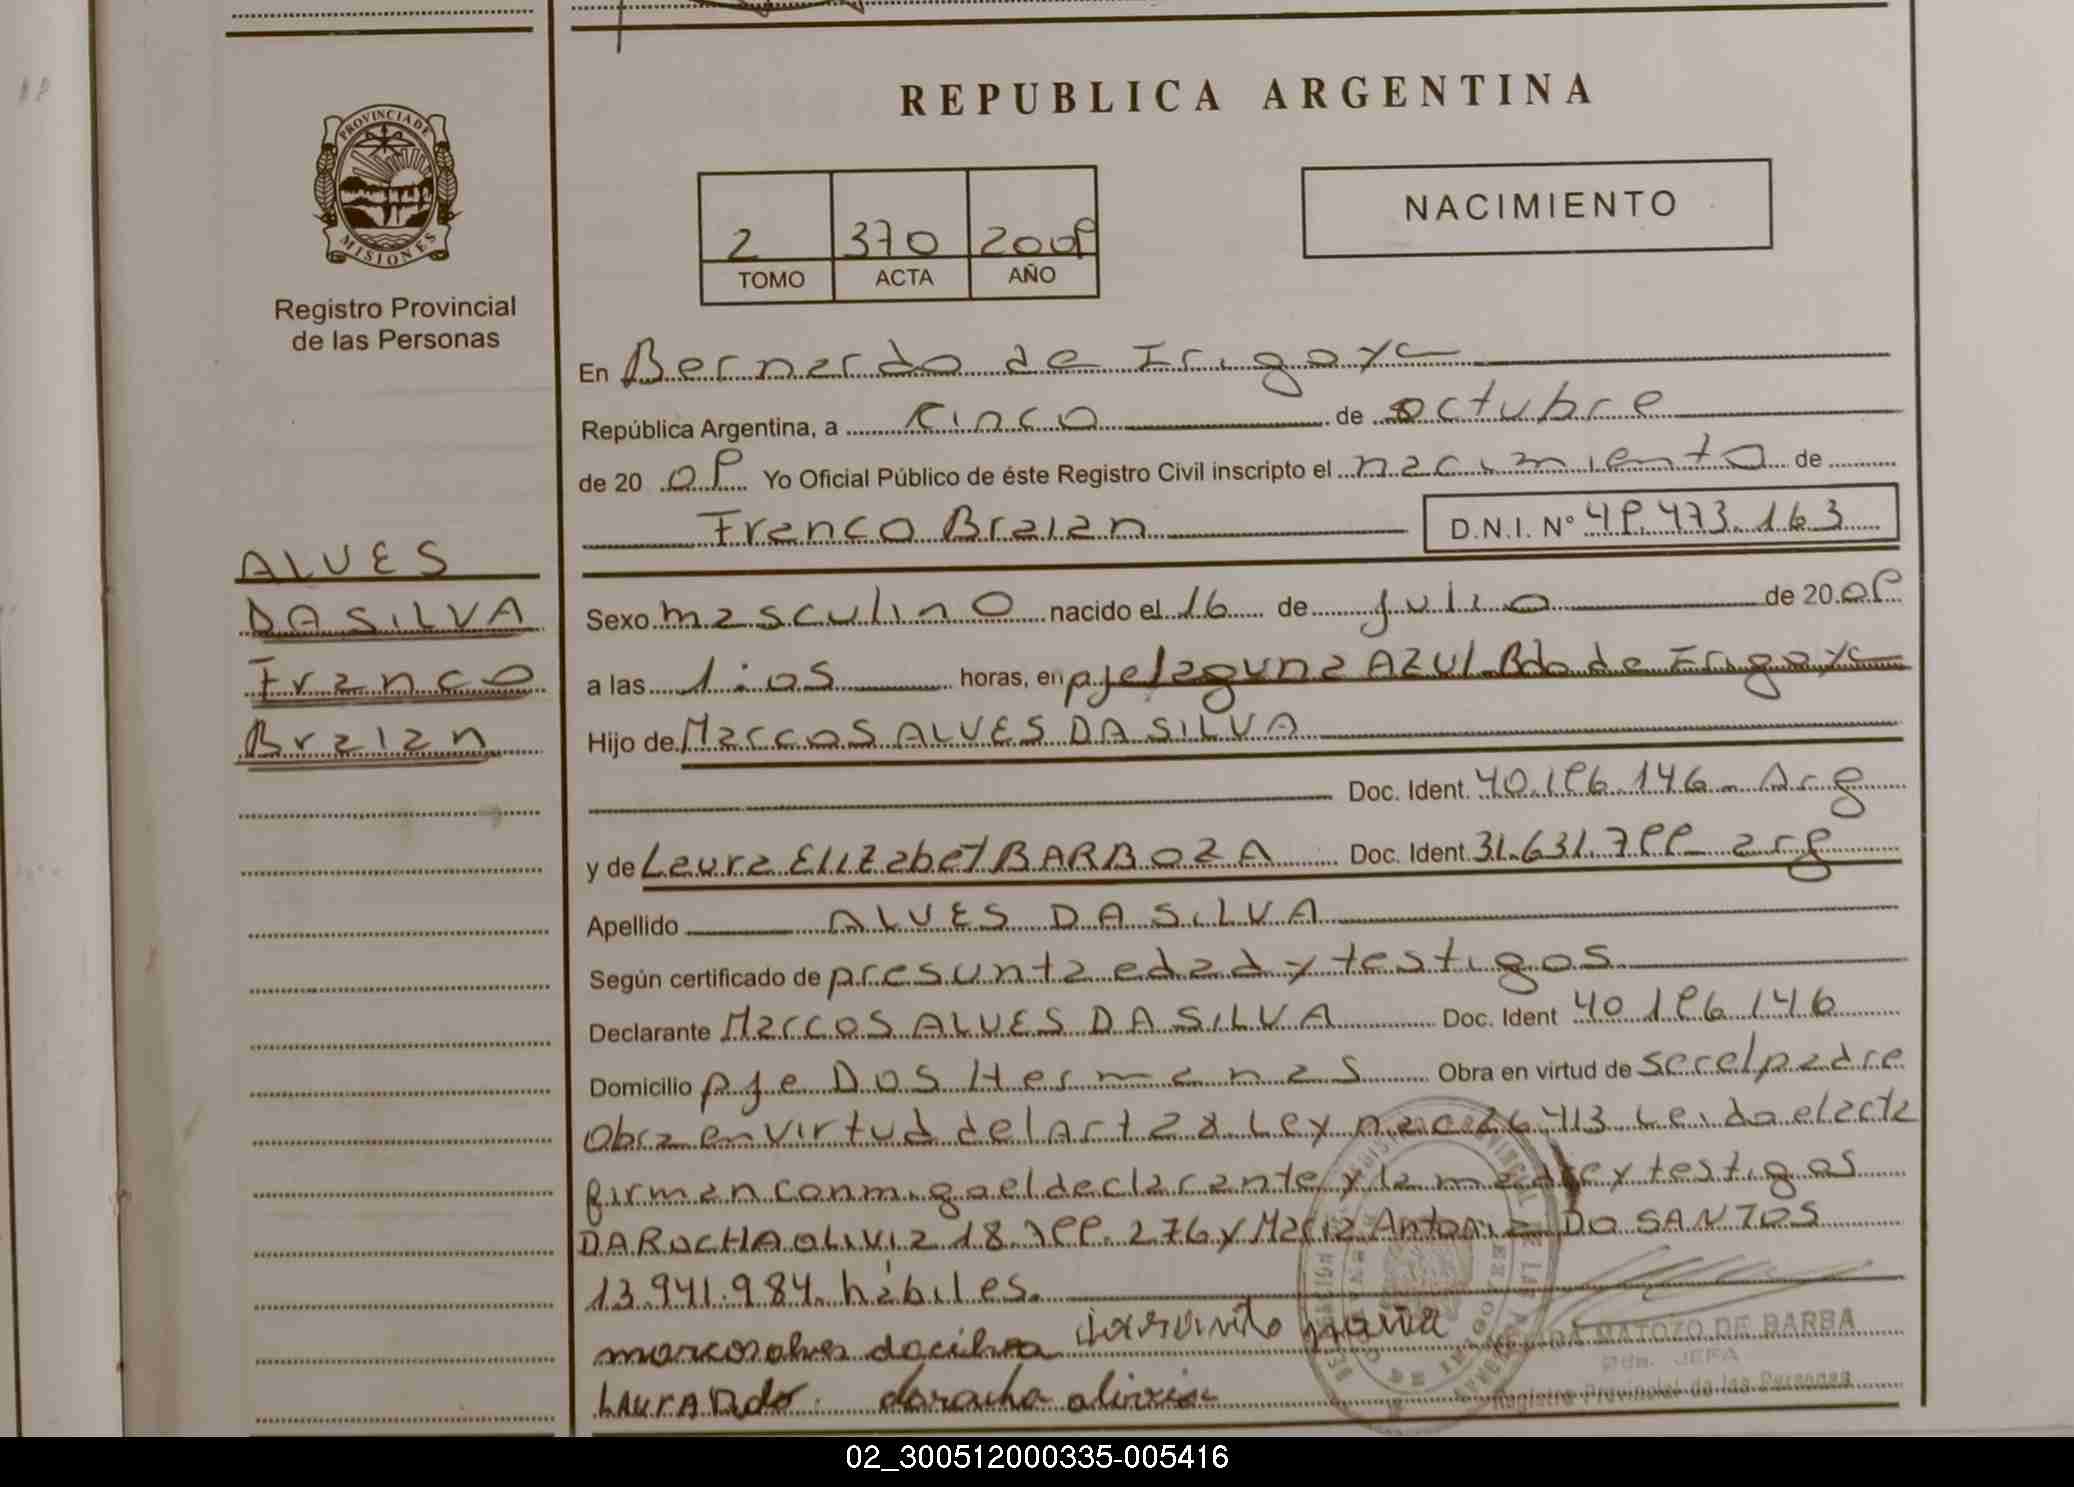 REPUBLICA ARGENTINA
PROVINCIA DE MISIONES
Registro Provincial
de las Personas
2 370 2009
TOMO ACTA AÑO
NACIMIENTO
En Bernardo de Irigoye
República Argentina, a cinco de octubre
de 20 09 Yo Oficial Público de éste Registro Civil inscripto el nacimiento de
Franco Braian D.N.I. N° 49.473.163
ALVES
DA SILVA
Franco
Braian
Sexo masculino nacido el 16 de julio de 20 09
a las 1:05 horas, en pje laguna AZUL Bdo de Irigoye
Hijo de Marcos ALVES DA SILVA
Doc. Ident. 40.196.146 - Arg
y de Laura ELIZabet BARBOZA Doc. Ident. 31.631.799 - arg
Apellido ALVES DA SILVA
Según certificado de presunta edad y testigos
Declarante Marcos ALVES DA SILVA Doc. Ident 40.196.146
Domicilio pje Dos Hermanas Obra en virtud de ser el padre
Obra en virtud del Art 28 Ley nac 26.413 Leida el acta
firman conmigo el declarante y la madre y testigos
DA ROCHA OLIVIA 18.799.276 y Maria Antonia DO SANTOS
13.941.984. hábiles.
MATOZO DE BARBA
JEFA
Registro Provincial de las Personas
02_300512000335-005416